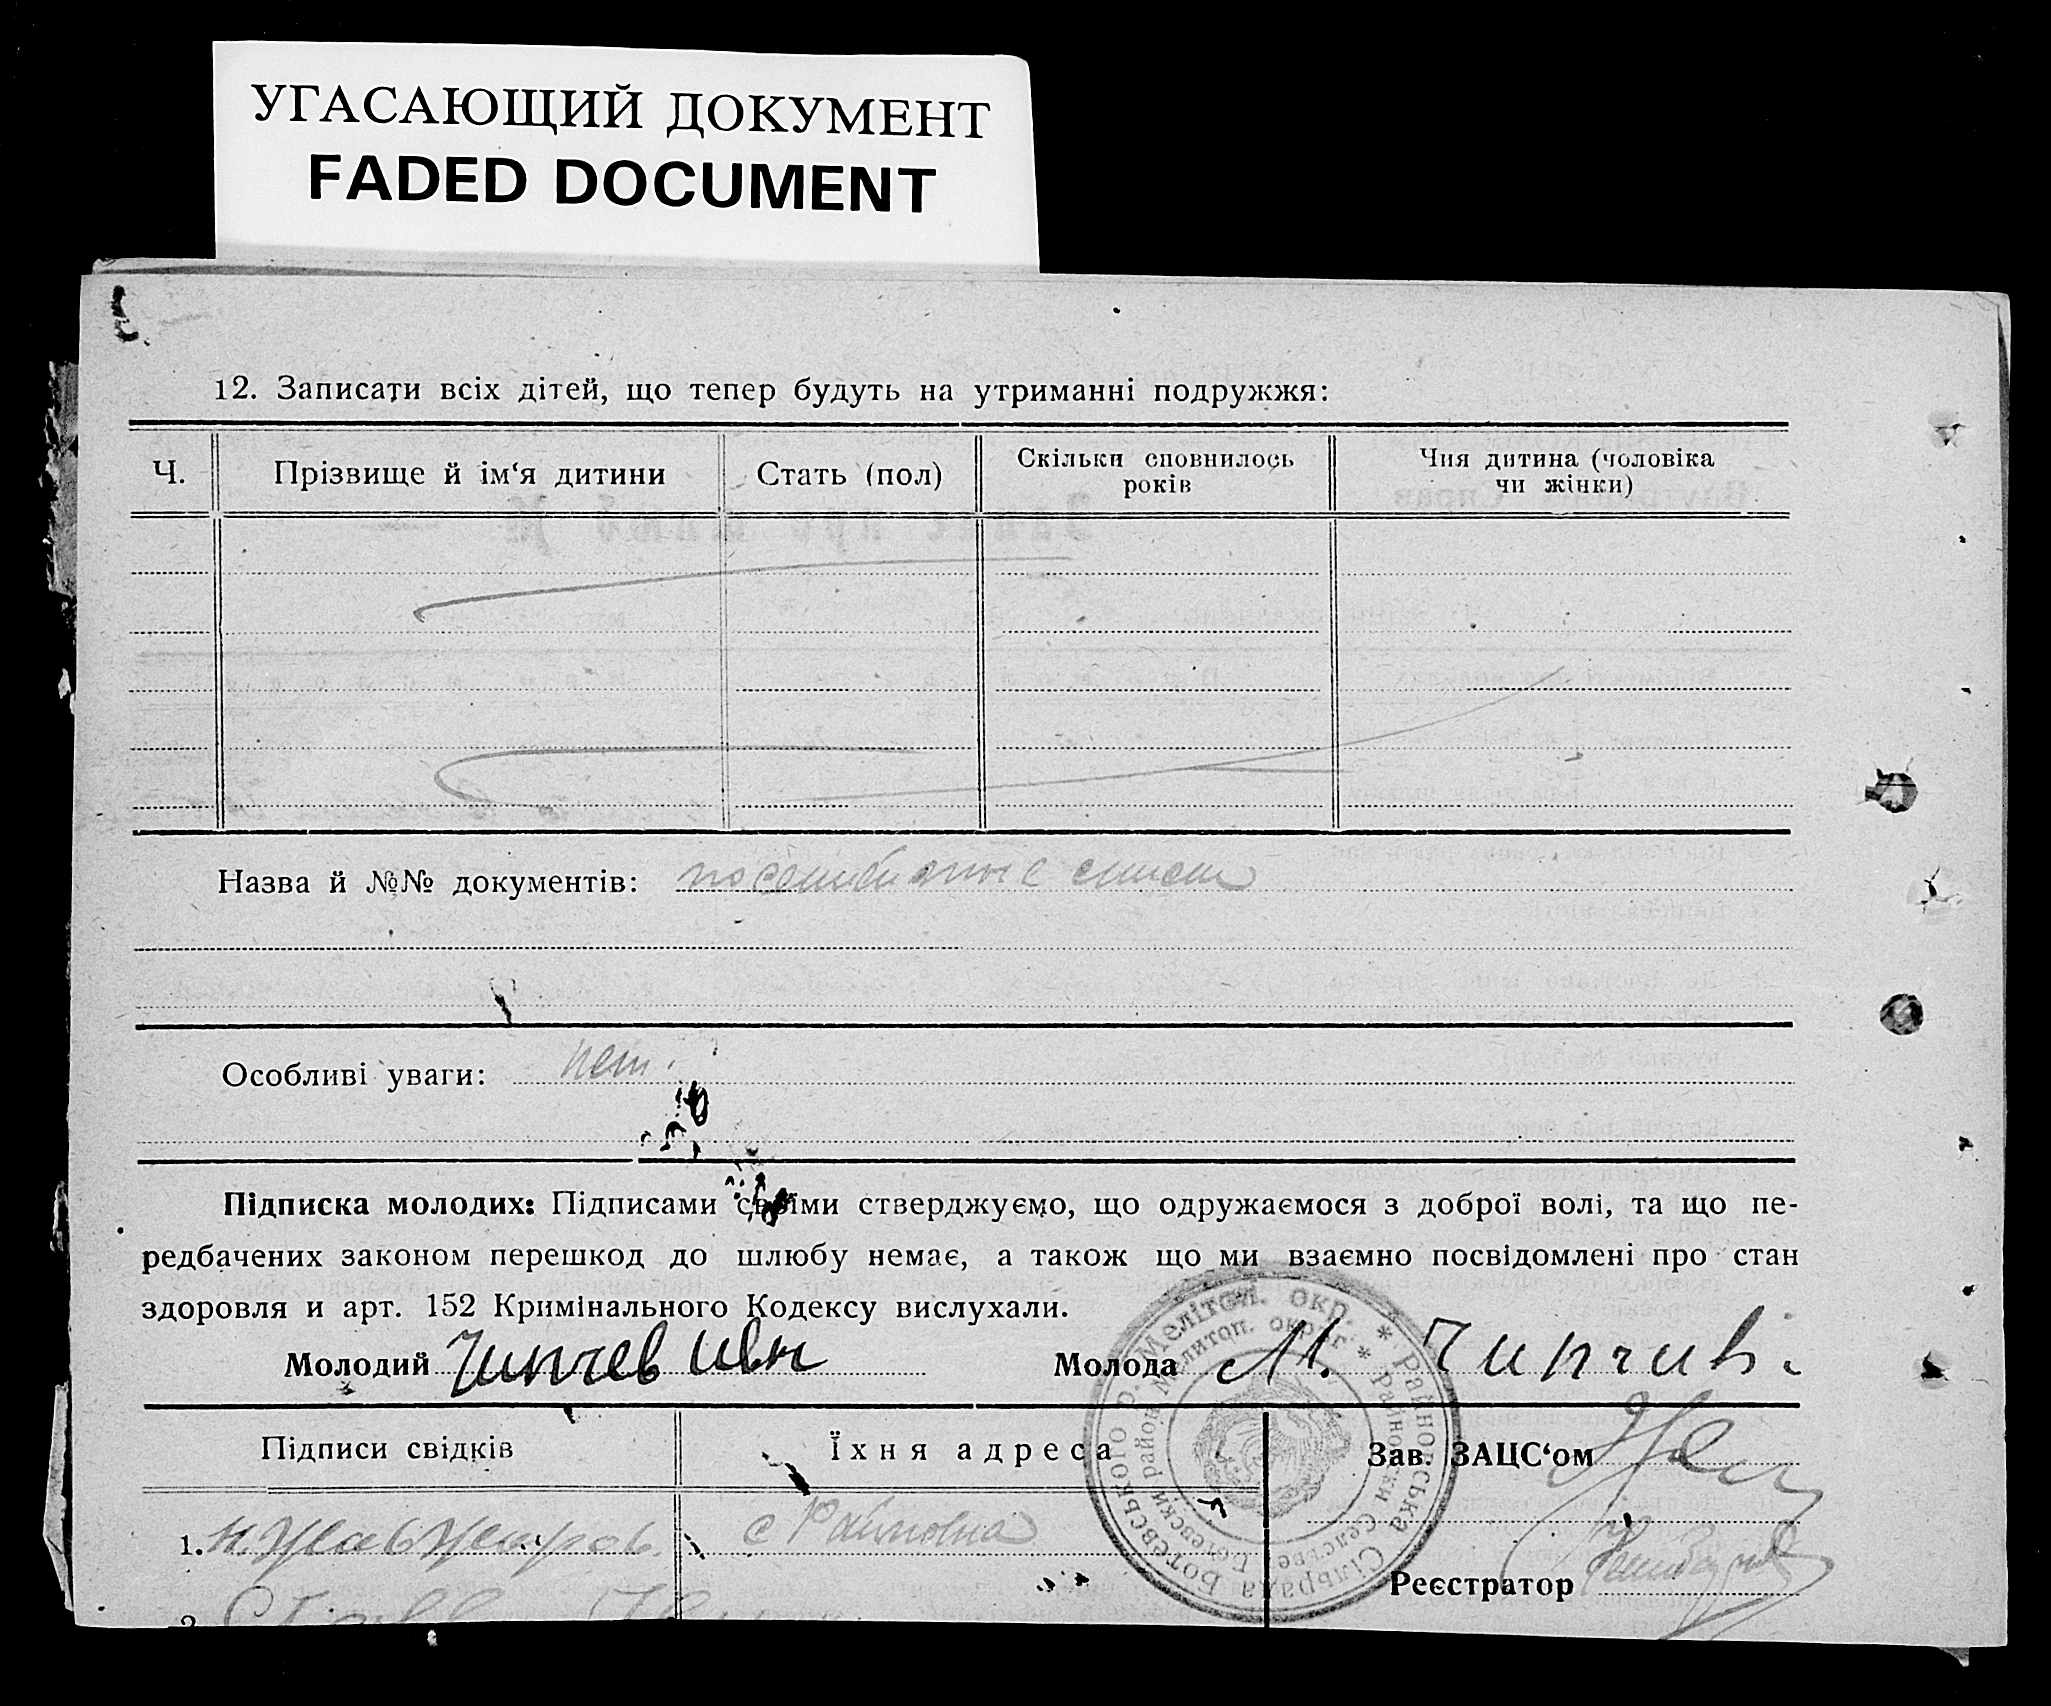 УГАСАЮЩИЙ ДОКУМЕНТ
FADED DOCUMENT
12. Записати всіх дітей, що тепер будуть на утриманні подружжя:
Ч. Прізвище й ім‘я дитини Стать (пол) Скільки сповнилось років Чия дитина (чоловіка чи жінки)
Назва й №№ документів:
Особливі уваги: нет.
Підписка молодих: Підписами своїми стверджуємо, що одружаємося з доброї волі, та що пе-
редбачених законом перешкод до шлюбу немає, а також що ми взаємно посвідомлені про стан
здоровля и арт. 152 Кримінального Кодексу вислухали.
Молодий Чипчев Ивн Молода М. Чипчиві
Підписи свідків Їхня адреса Зав. ЗАЦС‘ом
1. с Райновка
Реєстратор
2.
Райновська Сільрада Ботєвського р. Мелітоп. окр.